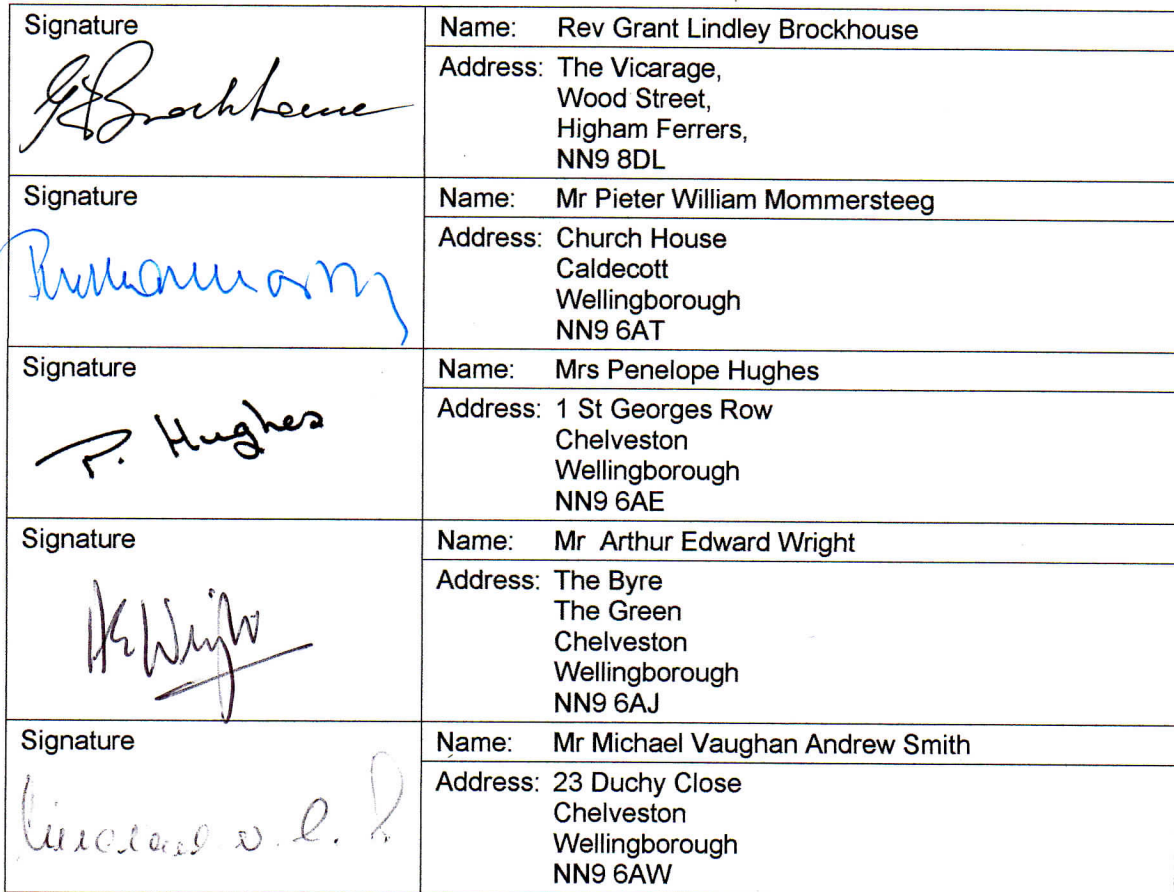 Signature
Name: Rev Grant Lindley Brockhouse
GLBrockhouse
Address: The Vicarage,
Wood Street,
Higham Ferrers,
NN9 8DL
Signature
Name: Mr Pieter William Mommersteeg
Address: Church House
Caldecott
Wellingborough
NN9 6AT
Signature
Name: Mrs Penelope Hughes
P. Hughes
Address: 1 St Georges Row
Chelveston
Wellingborough
NN9 6AE
Signature
Name: Mr Arthur Edward Wright
AEWright
Address: The Byre
The Green
Chelveston
Wellingborough
NN9 6AJ
Signature
Name: Mr Michael Vaughan Andrew Smith
Address: 23 Duchy Close
Chelveston
Wellingborough
NN9 6AW